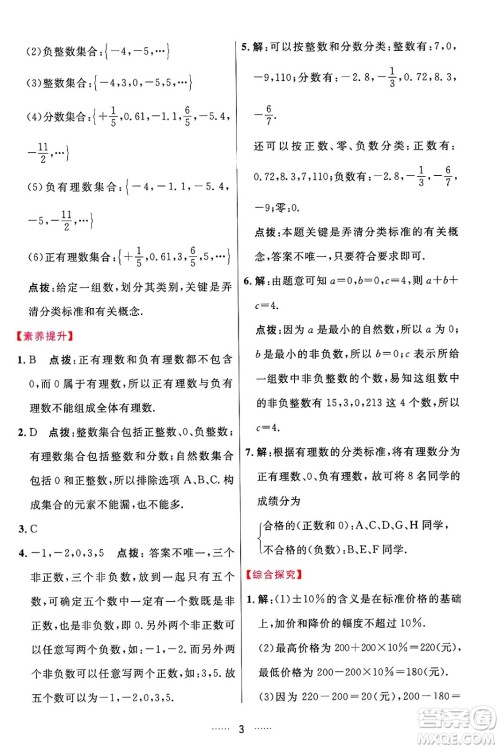 (2)负整数集合:{-4,-5,…}
(3)整数集合:{-4,3,0,-5,…}
(4)分数集合:{+1/5,0.61,-1.1,6/5,
-11/2,…}
(5)负有理数集合:{-4,-1.1,-5,
-11/2,…}
(6)正有理数集合:{+1/5,0.61,3,6/5,…}
点拨:给定一组数,划分其类别,关键是弄
清分类标准和有关概念.
【素养提升】
1. B 点拨:正有理数和负有理数都不包括
0,而0属于有理数,所以正有理数和负有
理数不能组成全体有理数.
2. D 点拨:整数集合包括正整数、0、负整
数集合,而分数集合包括正分数和负分数
集合,有理数集合包括整数和分数集合,
构成集合的元素不能漏,所以排除选项
A、B、C.
3. C
4. -1,-2,0,3,5 点拨:答案不唯一,三个
非正数,三个非负数,一共五个数,必有一
个数既是非正数,也是非负数,所以这五个
数中必有0.两个非正数可以任意写两个负
数;两个非负数可以任意写两个正数,如
-1,-2,0,3,5.
5. 解:可以按整数和分数分类:整数:7,0,
-9,110;分数:-2.8,-1/3,0.72,8.3,
-6/7.
还可以按正数、零、负数分类:正数:7,
0.72,8.3,110;负数:-2.8,-1/3,-6/7,
-9;零:0.
点拨:本题关键是弄清分类标准的有关概
念,答案不唯一,只要符合要求即可.
6. 解:由题意可知a=0,b=0,则a+b+
c=4.
点拨:因为0是最大的非正数,所以a=
0;因为最小的非负数是0,所以b=0;这
一组数中非负整数的个数,即这组数中的
非负整数有15,3,0,213这4个数,所以
c=4.
7. 解:根据有理数的分类标准,将有理数分为
正有理数、0、负有理数.可将8名同学的
成绩分为
合格的(正数和0):A、C、D、F、G、H同学,
不合格的(负数):B、E同学.
【综合探究】
1. 解:(1)±10%的含义是在标准价格的基础
上,加价和降价的幅度不超过10%.
(2)最高价格为200+200×10%=220(元),
最低价格为200-200×10%=180(元).
(3)220-200=20(元),200-180=
3